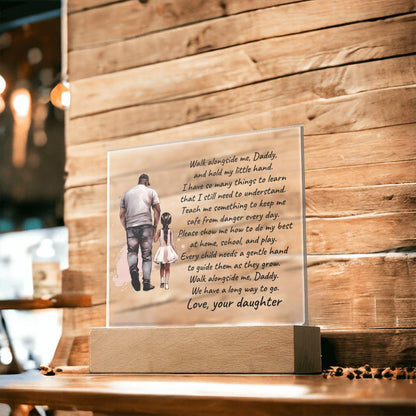 Walk alongside me, Daddy,
and hold my little hand.
I have so many things to learn
that I still need to understand.
Teach me something to keep me
safe from danger every day.
Please show me how to do my best
at home, school, and play.
Every child needs a gentle hand
to guide them as they grow.
Walk alongside me, Daddy.
We have a long way to go.
Love, your daughter